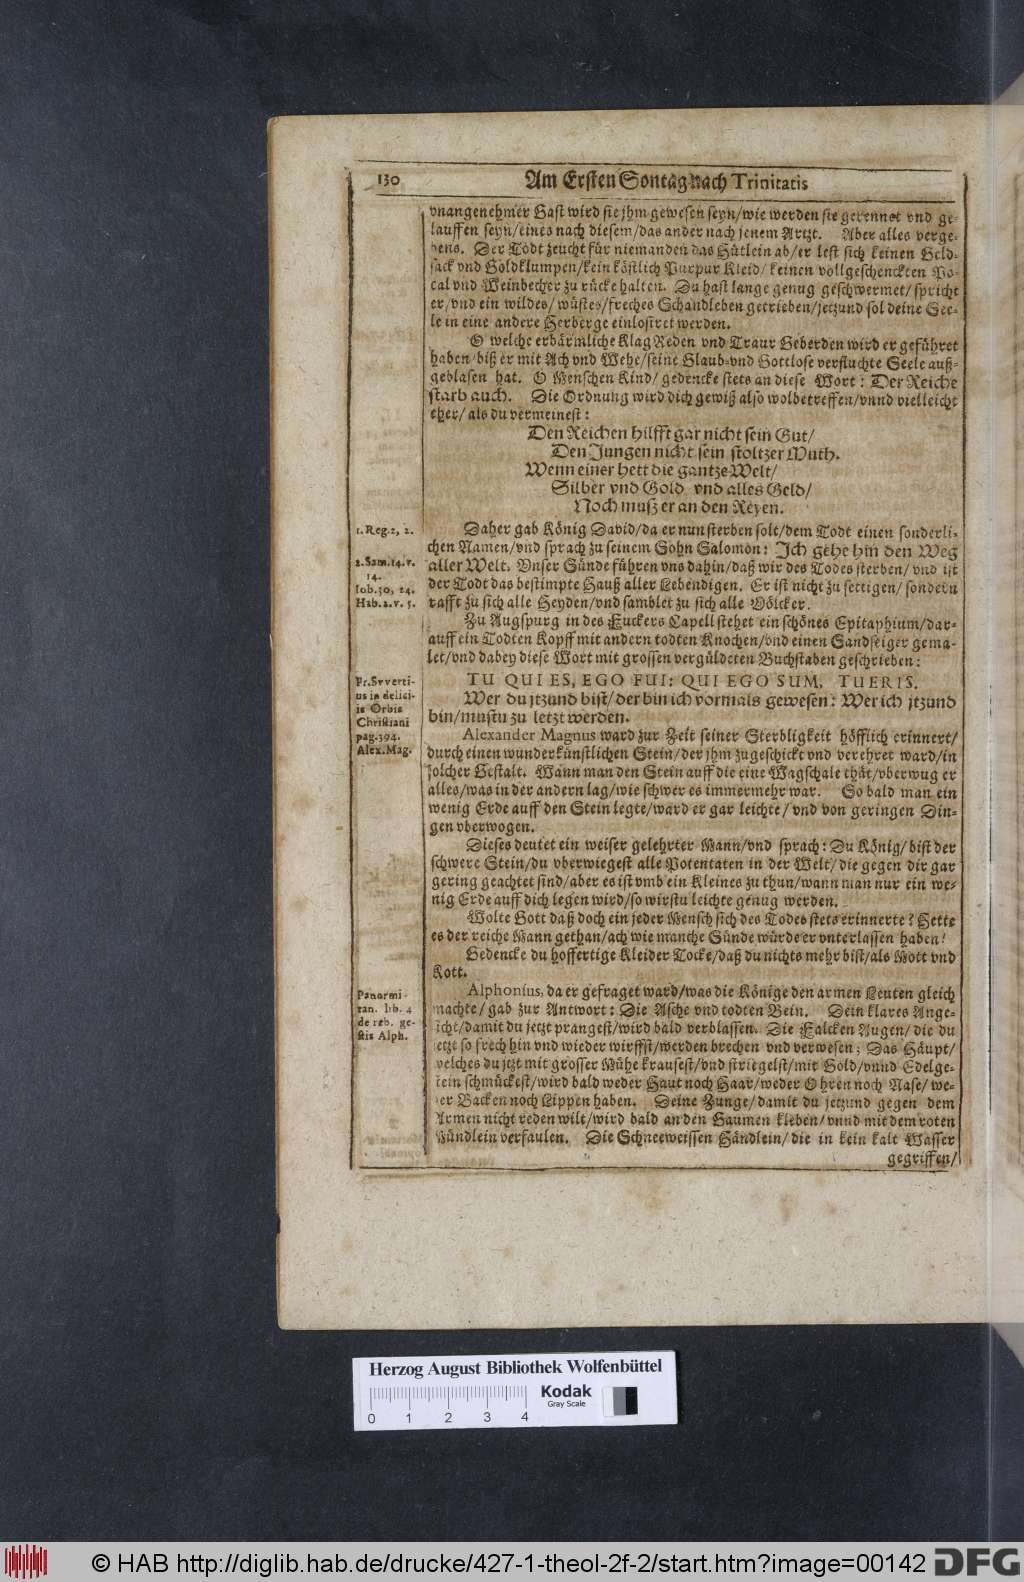 130 Am Ersten Sontag nach Trinitatis
vnangenehmer Gast wird sie jhm gewesen seyn/wie werden sie gerennet vnd ge-
lauffen seyn/eines nach diesem/das ander nach jenem Artzt. Aber alles verge-
bens. Der Todt zeucht für niemanden das Hütlein ab/er lest sich keinen Geld-
sack vnd Goldklumpen/kein köstlich Purpur Kleid/keinen vollgeschenckten Po-
cal vnd Weinbecher zu rücke halten. Du hast lange genug geschwermet/spricht
er/vnd ein wildes/wüstes/freches Schandleben getrieben/jetzund sol deine See-
le in eine andere Herberge einlosiret werden.
O welche erbärmliche Klag Reden vnd Traur Geberden wird er geführet
haben/biß er mit Ach vnd Wehe/seine Glaub-vnd Gottlose verfluchte Seele auß-
geblasen hat. O Menschen Kind/gedencke stets an diese Wort: Der Reiche
starb auch. Die Ordnung wird dich gewiß also wol betreffen/vnnd vielleicht
eher/als du vermeinest:
Den Reichen hilfft gar nicht sein Gut/
Den Jungen nicht sein stoltzer Muth.
Wenn einer hett die gantze Welt/
Silber vnd Gold vnd alles Geld/
Noch muß er an den Reyen.
1. Reg. 2, 2.
Daher gab König David/da er nun sterben solt/dem Todt einen sonderli-
chen Namen/vnd sprach zu seinem Sohn Salomon: Ich gehe hin den Weg
2. Sam. 14. v.
14.
aller Welt. Vnser Sünde führen vns dahin/daß wir des Todes sterben/vnd ist
Iob. 30, 24.
der Todt das bestimpte Hauß aller Lebendigen. Er ist nicht zu settigen/sondern
Hab. 2. v. 5.
rafft zu sich alle Heyden/vnd samblet zu sich alle Völcker.
Zu Augspurg in des Fuckers Capell stehet ein schönes Epitaphium/dar-
auff ein Todten Kopff mit andern todten Knochen/vnd einen Sandseiger gema-
let/vnd dabey diese Wort mit grossen vergüldeten Buchstaben geschrieben:
Fr. Svverti-
us in delici-
is Orbis
Christiani
pag. 394.
Alex. Mag.
TU QUI ES, EGO FUI: QUI EGO SUM, TU ERIS.
Wer du jtzund bist/der bin ich vormals gewesen: Wer ich jtzund
bin/mustu zu letzt werden.
Alexander Magnus ward zur Zeit seiner Sterbligkeit höfflich erinnert/
durch einen wunderkünstlichen Stein/der jhm zugeschickt vnd verehret ward/in
solcher Gestalt. Wann man den Stein auff die eine Wagschale thät/vberwug er
alles/was in der andern lag/wie schwer es immermehr war. So bald man ein
wenig Erde auff den Stein legte/ward er gar leichte/vnd von geringen Din-
gen vberwogen.
Dieses deutet ein weiser gelehrter Mann/vnd sprach: Du König/bist der
schwere Stein/du vberwiegest alle Potentaten in der Welt/die gegen dir gar
gering geachtet sind/aber es ist vmb ein Kleines zu thun/wann man nur ein we-
nig Erde auff dich legen wird/so wirstu leichte genug werden.
Wolte Gott daß doch ein jeder Mensch sich des Todes stets erinnerte? Hette
es der reiche Mann gethan/ach wie manche Sünde würde er vnterlassen haben!
Gedencke du hoffertige Kleider Tocke/daß du nichts mehr bist/als Mott vnd
Kott.
Panormi-
tan. lib. 4
de reb. ge-
stis Alph.
Alphonsus, da er gefraget ward/was die Könige den armen Leuten gleich
machte/gab zur Antwort: Die Asche vnd todten Bein. Dein klares Ange-
sicht/damit du jetzt prangest/wird bald verblassen. Die Falcken Augen/die du
jetzt so frech hin vnd wieder wirffst/werden brechen vnd verwesen; Das Häupt/
welches du jtzt mit grosser Mühe krausest/vnd striegelst/mit Gold/vnnd Edelge-
stein schmückest/wird bald weder Haut noch Haar/weder Ohren noch Nase/we-
der Backen noch Lippen haben. Deine Zunge/damit du jetzund gegen dem
Armen nicht reden wilt/wird bald an den Gaumen kleben/vnnd mit dem roten
Mündlein verfaulen. Die Schneeweissen Händlein/die in kein kalt Wasser
gegriffen/
Herzog August Bibliothek Wolfenbüttel
Kodak
Gray Scale
0 1 2 3 4
© HAB http://diglib.hab.de/drucke/427-1-theol-2f-2/start.htm?image=00142 DFG